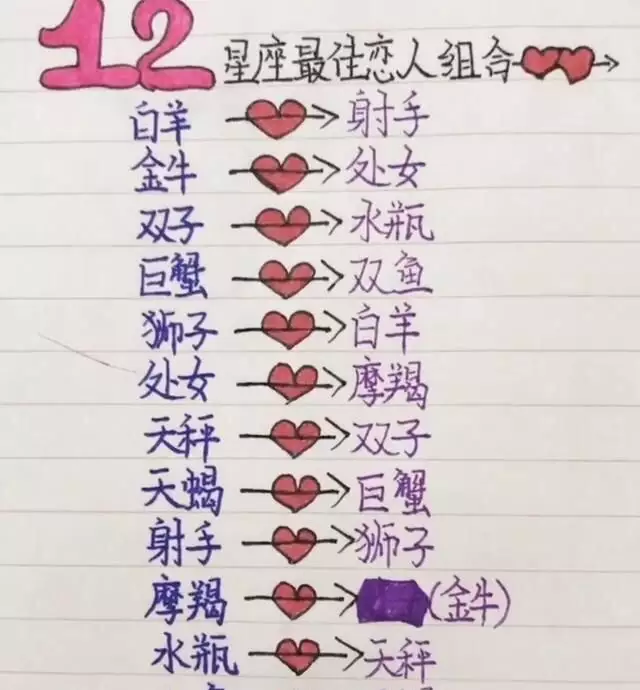 12星座最佳恋人组合
白羊 射手
金牛 处女
双子 水瓶
巨蟹 双鱼
狮子 白羊
处女 摩羯
天秤 双子
天蝎 巨蟹
射手 狮子
摩羯 (金牛)
水瓶 天秤